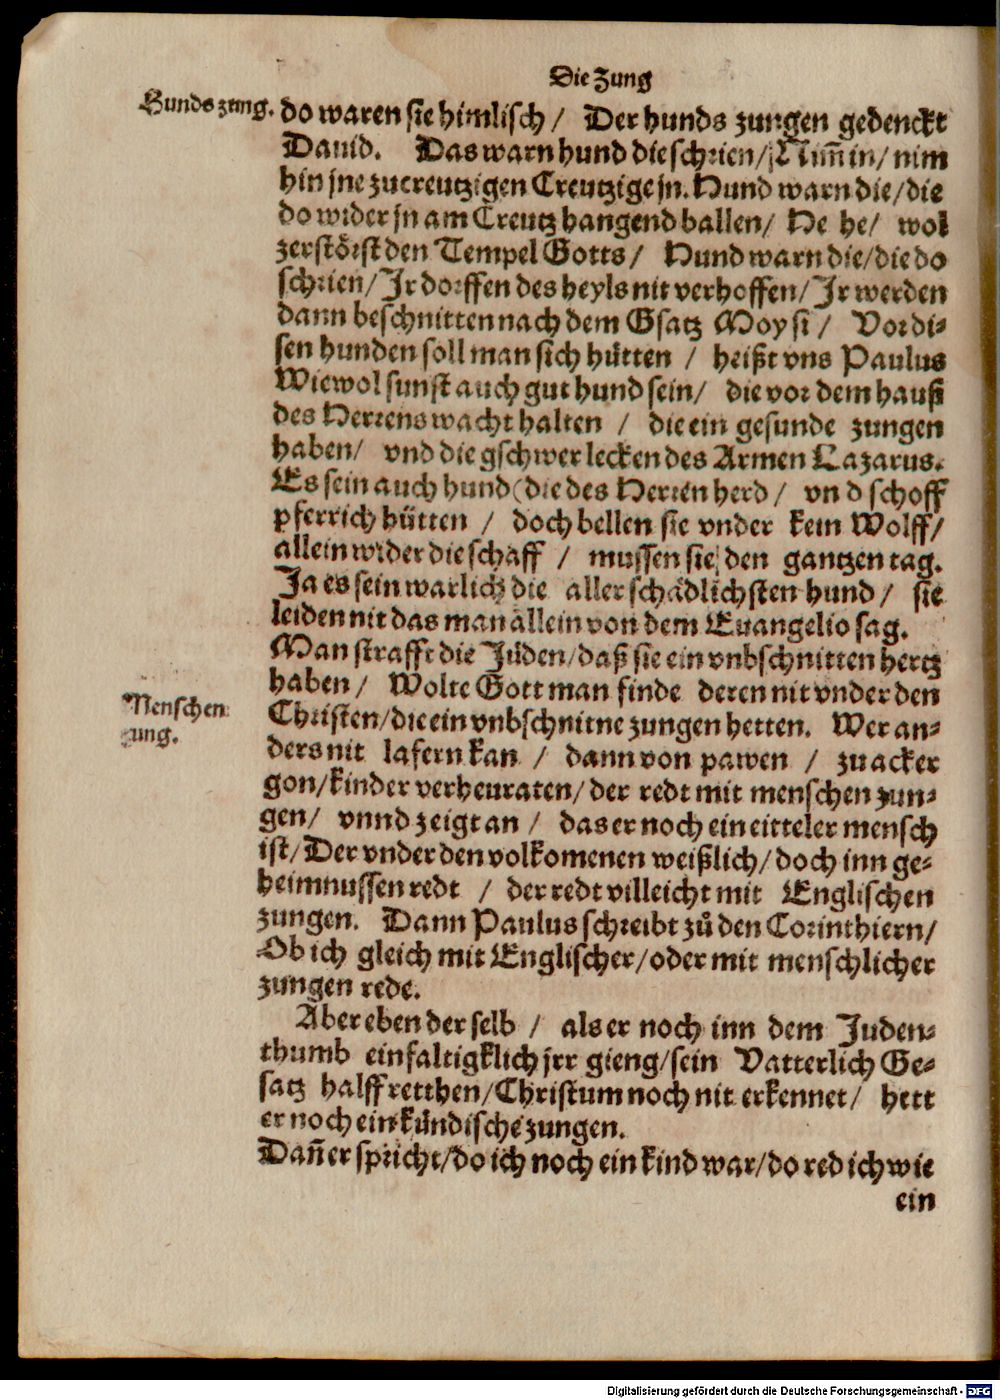 Die Zung
Hunds zung.
do waren sie himlisch / Der hunds zungen gedenckt
Dauid. Das warn hund die schrien / Nim̃ in / nim
hin jne zu creutzigen Creutzige jn. Hund warn die / die
do wider jn am Creutz hangend ballen / He he / wol
zerstörst den Tempel Gotts / Hund warn die / die do
schrien / Jr dorffen des heyls nit verhoffen / Jr werden
dann beschnitten nach dem Gsatz Moysi / Vor di⸗
sen hunden soll man sich hütten / heißt vns Paulus
Wiewol sunst auch gut hund sein / die vor dem hauß
des Herrens wacht halten / die ein gesunde zungen
haben / vnd die gschwer lecken des Armen Lazarus.
Es sein auch hund (die des Herren herd / vn d schoff
pferrich hütten / doch bellen sie vnder kein Wolff /
allein wider die schaff / mussen sie den gantzen tag.
Ja es sein warlich die aller schädlichsten hund / sie
leiden nit das man allein von dem Euangelio sag.
Man strafft die Jüden / daß sie ein vnbschnitten hertz
haben / Wolte Gott man finde deren nit vnder den
Menschen
zung.
Christen / die ein vnbschnitne zungen hetten. Wer an⸗
ders nit lafern kan / dann von pawen / zu acker
gon / kinder verheuraten / der redt mit menschen zun⸗
gen / vnnd zeigt an / das er noch ein eitteler mensch
ist / Der vnder den volkomenen weißlich / doch inn ge⸗
heimnussen redt / der redt villeicht mit Englischen
zungen. Dann Paulus schreibt zů den Corinthiern /
Ob ich gleich mit Englischer / oder mit menschlicher
zungen rede.
Aber eben der selb / als er noch inn dem Juden⸗
thumb einfaltigklich jrr gieng / sein Vatterlich Ge⸗
satz halff retthen / Christum noch nit erkennet / hett
er noch ein kündische zungen.
Dañ er spricht / do ich noch ein kind war / do red ich wie
ein
Digitalisierung gefördert durch die Deutsche Forschungsgemeinschaft - DFG